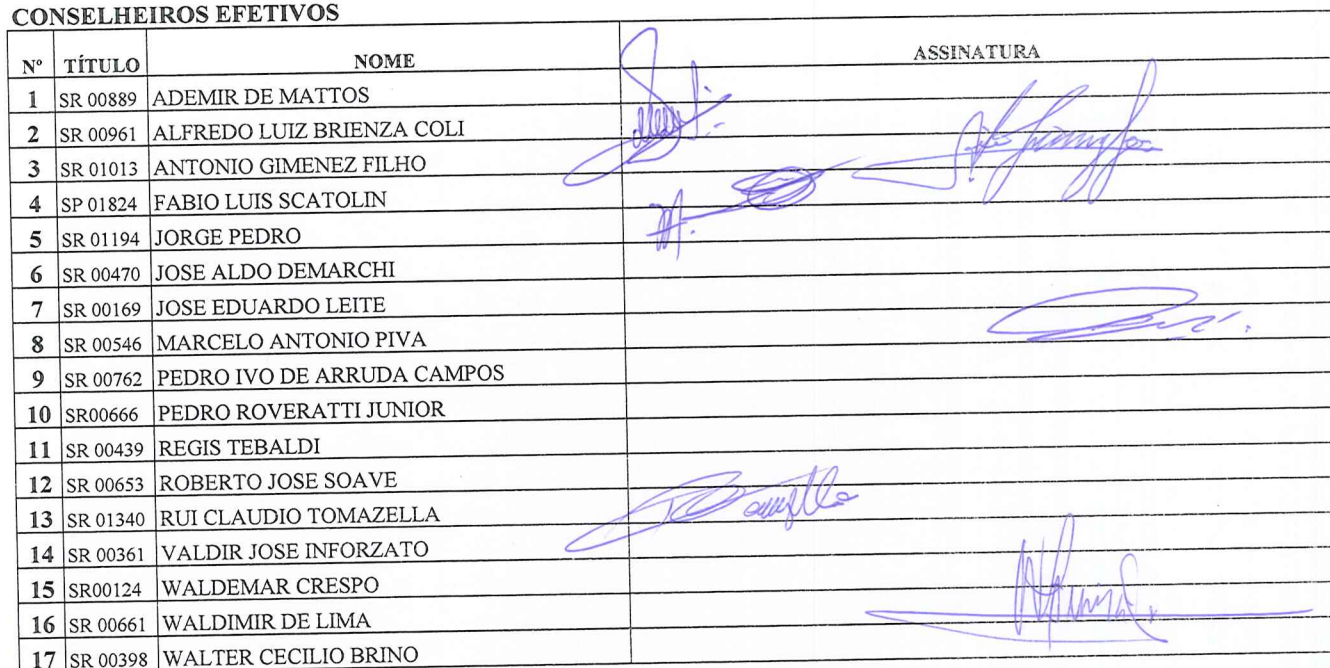 CONSELHEIROS EFETIVOS
Nº TÍTULO NOME ASSINATURA
1 SR 00889 ADEMIR DE MATTOS
2 SR 00961 ALFREDO LUIZ BRIENZA COLI
3 SR 01013 ANTONIO GIMENEZ FILHO
4 SP 01824 FABIO LUIS SCATOLIN
5 SR 01194 JORGE PEDRO
6 SR 00470 JOSE ALDO DEMARCHI
7 SR 00169 JOSE EDUARDO LEITE
8 SR 00546 MARCELO ANTONIO PIVA
9 SR 00762 PEDRO IVO DE ARRUDA CAMPOS
10 SR00666 PEDRO ROVERATTI JUNIOR
11 SR 00439 REGIS TEBALDI
12 SR 00653 ROBERTO JOSE SOAVE
13 SR 01340 RUI CLAUDIO TOMAZELLA
14 SR 00361 VALDIR JOSE INFORZATO
15 SR00124 WALDEMAR CRESPO
16 SR 00661 WALDIMIR DE LIMA
17 SR 00398 WALTER CECILIO BRINO